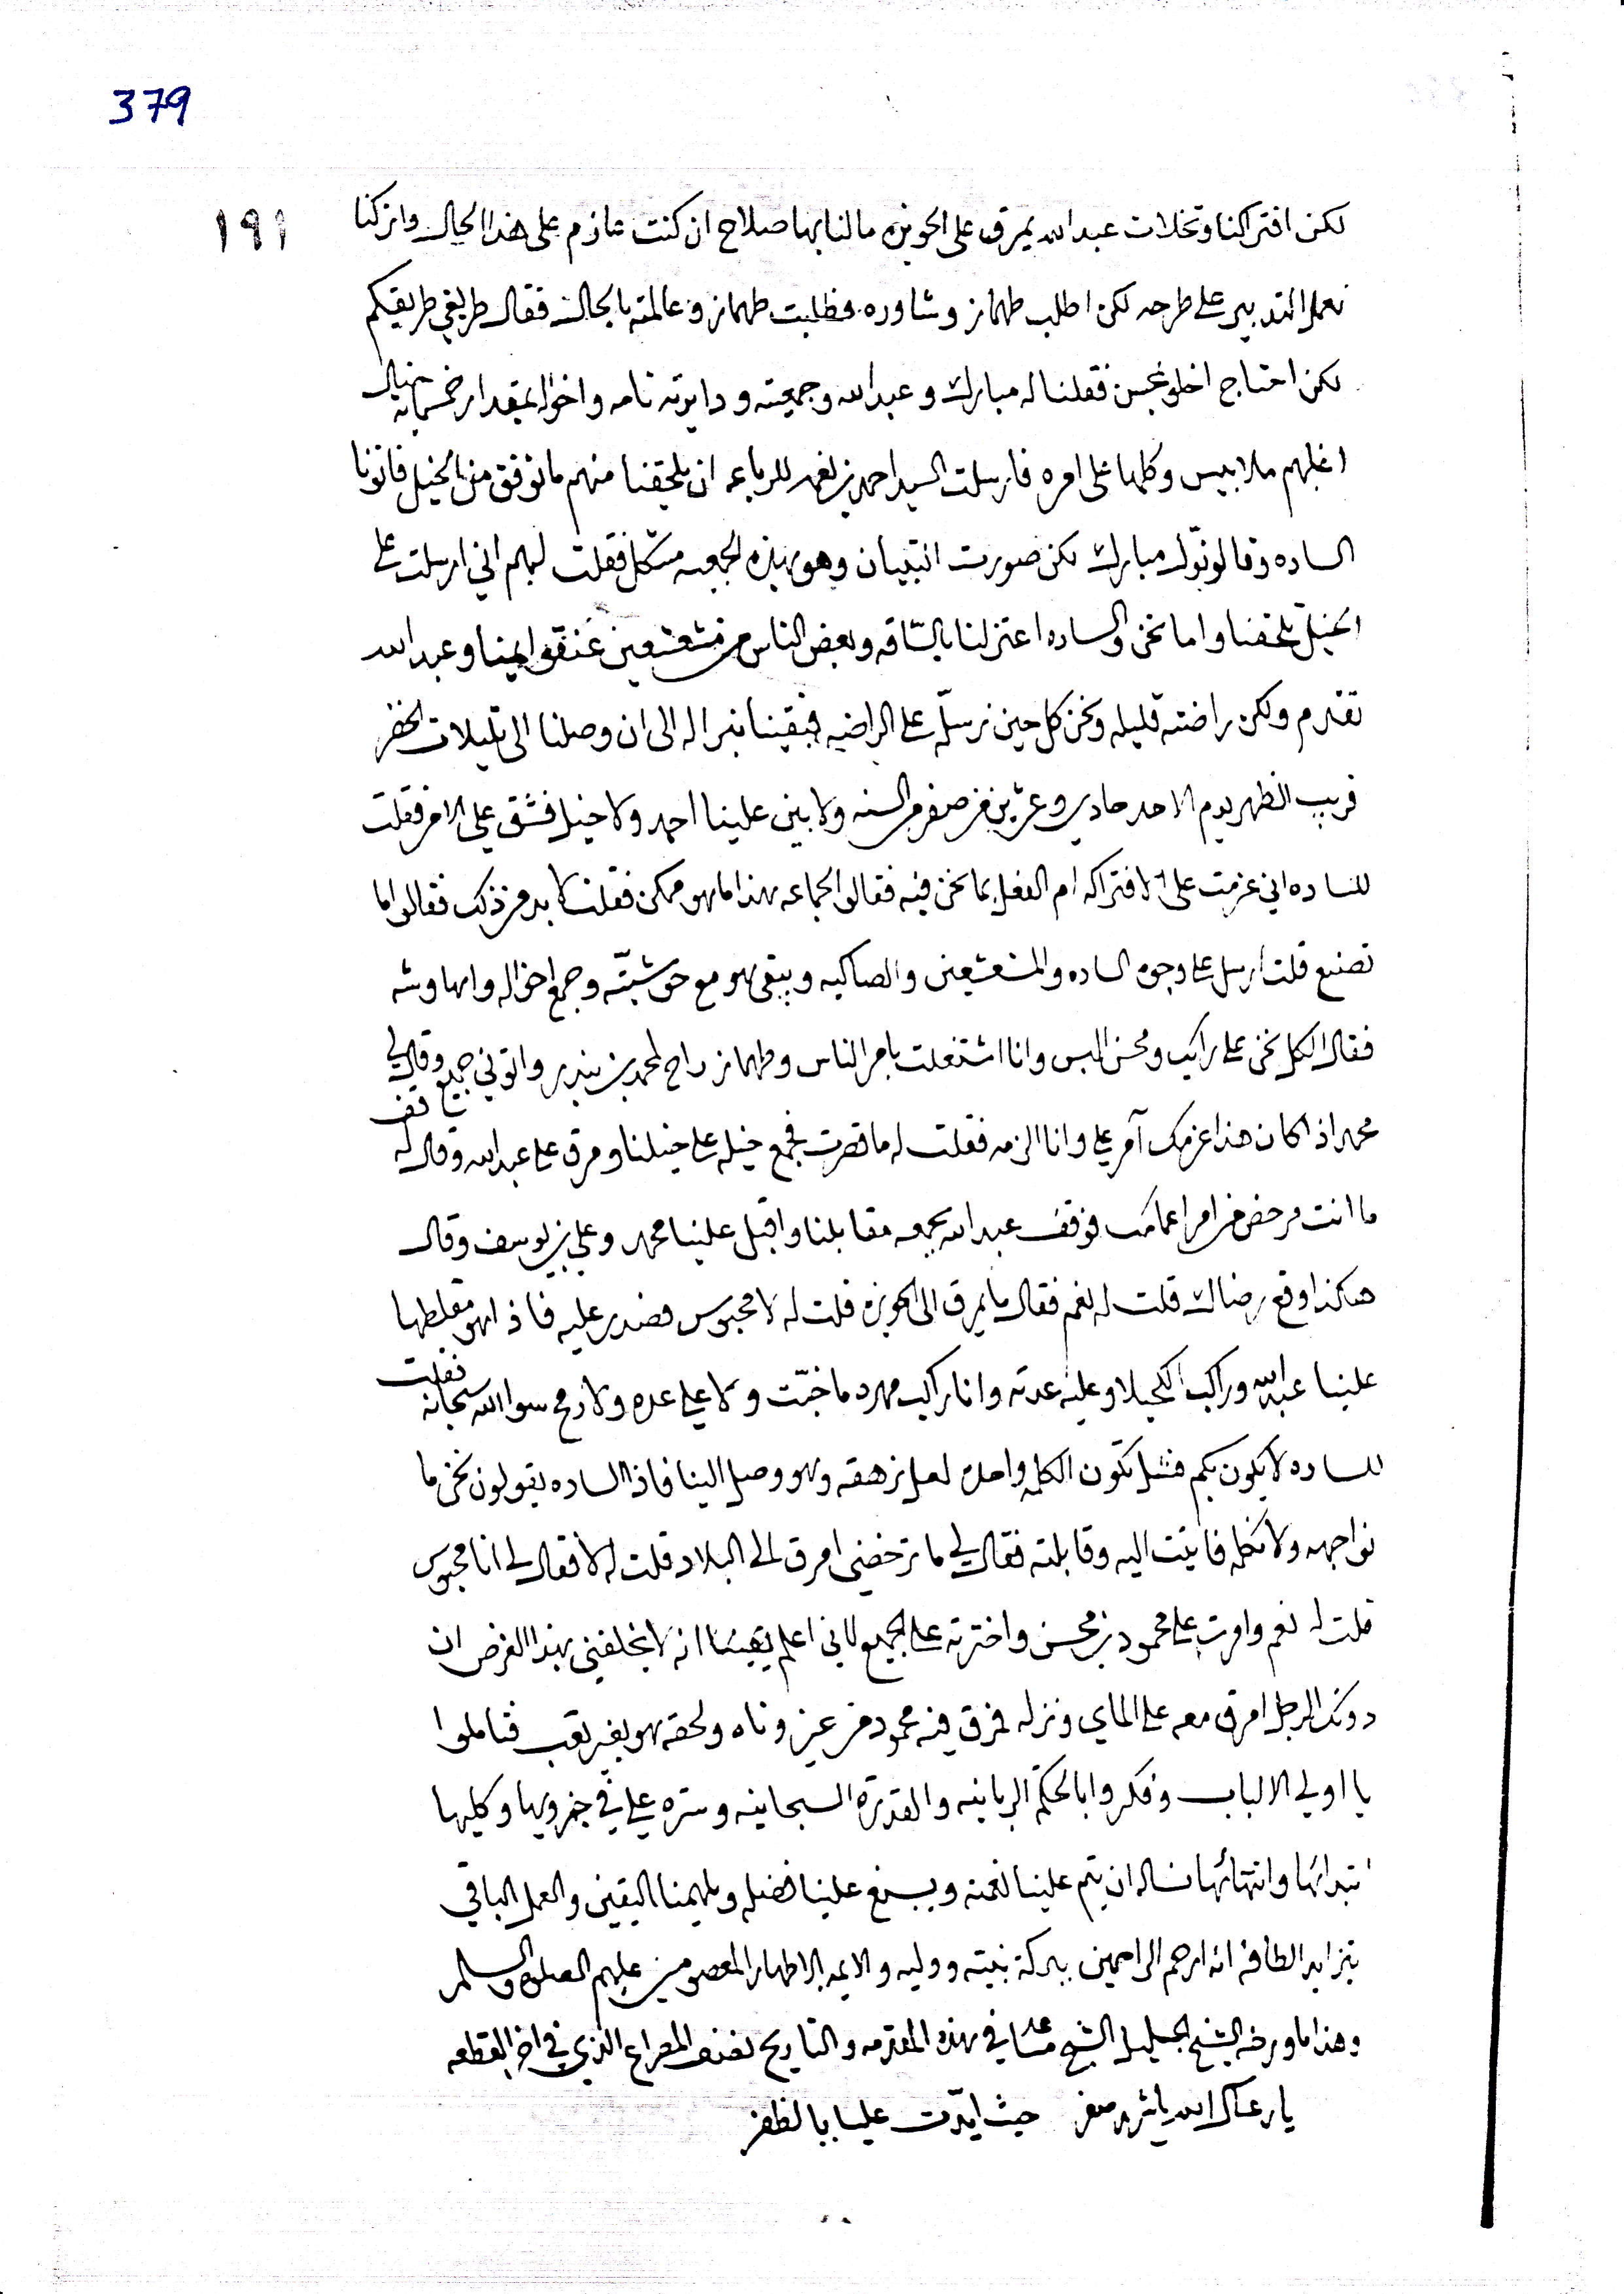 379
١٩١
لكن افتراكنا وتخلات عبد الله يمرق على الحويزه مالنا بها صلاح ان كنت عازم على هذا الحال واتركنا
نعمل التدبير على طرحه لكن اطلب طهماز وشاوره فطلبت طهماز وعالمته بالحال فقال طريقي طريقكم
لكن احتاج اخلو بمحسن فقلنا له مبارك وعبد الله وجمعيته ودايرته تامه واخواله بمقدار خمسمائة خيال
اغلبهم ملابيس وكلها على امره فارسلت السيد احمد بن لفهد للرباعه ان يلحقنا منهم ما توفق من الخيل فاتونا
الساده وقالو نوّك مبارك لكن صورت التبيان وهو بهذه الجمعيه مشكل فقلت لهم اني ارسلت على
الخيل تلحقنا واما نحن والساده اعتزلنا بالسّاقه وبعض الناس من مشعشعين عنقو الينا وعبد الله
تقدم ولكن راضته قليله ونحن كل حين نرسل له على الراضيه فبقينا نبرا له الى ان وصلنا الى تليلات الخضر
قريب الظهر يوم الاحد حادي وعشرين من صفر من السنه ولا بين علينا احمد ولا خيل فشق علي الامر فقلت
للساده اني عزمت على الافتراكه ام الفعل بما نحن فيه فقالوا الجماعه هذا ما هو ممكن فقلنا لابد من ذلك فقالوا ما
تصنع قلت ارسل على وجوه الساده والمشعشعين والصاكيه ويبقى هو مع حوشيتّه وجمع اخواله وابهاوشه
فقال الكل نحن على راكيب ومحسن البس وانا اشتغلت بامر الناس وطهماز راح لمحمد بن بندر واتوني جميع وقال لي
محمد اذا كان هذا عزمك آمر علي وانا الزمه فقلت له ما قصرت فجمع خيله على خيلنا ومرق على عبد الله وقال له قف
ما انت مرخص من امر اعمامك فوقف عبد الله بجمعه مقابلنا واقبل علينا محمد وعلي بن يوسف وقال
هكذا وقع رضاك قلت له نعم فقال ما يمرق الى الحويزه قلت له لا محبوس فصدر عليه فاذا هو مقلطها
علينا عبد الله وراكب الكحيلا وعليه عدته وانا راكب مهره ما خبّت ولا علي عده ولا رمح سوا الله سبحانه فقلت
للساده لا يكون بكم فشل تكون الكلمه واحده لعل نزهقه وهو وصل الينا فاذا الساده يقولون نحن ما
نواجهه ولا نكلمه فاتيت اليه وقابلته فقال لي ما ترخصني امرق الى البلاد قلت له لا فقال لي انا محبوس
قلت له نعم وامرت على محمود بن محسن واخترته على الجميع لاني اعلم يقينًا انه لا يخلفني بهذا الغرض ان
دونك الرجل امرق معه على الماي ونزله فمرق فيه محمود من غير وناه ولحقه هو بغير تعب فتاملوا
يا اولي الالباب وفكروا بالحكم الربانيه والقدرة السبحانيه وستره علي في جزويها وكليها
ابتدائها وانتهائها نساله ان يتم علينا نعمته ويسبغ علينا فضله ويلهمنا اليقين والعمل الباقي
بتزايد الطافه انه ارحم الراحمين ببركة نبيه ووليه والايمه الاطهار المعصومين عليهم الصلوة والسلم
وهذا ما ورخه الشيخ الجليل الشيخ مساعد في هذه المقدمه والتاريخ نصف المصراع الذي في اخر القطعه
يا رعاك الله يا شهر صفر   حيث ايدت عليا بالظفر